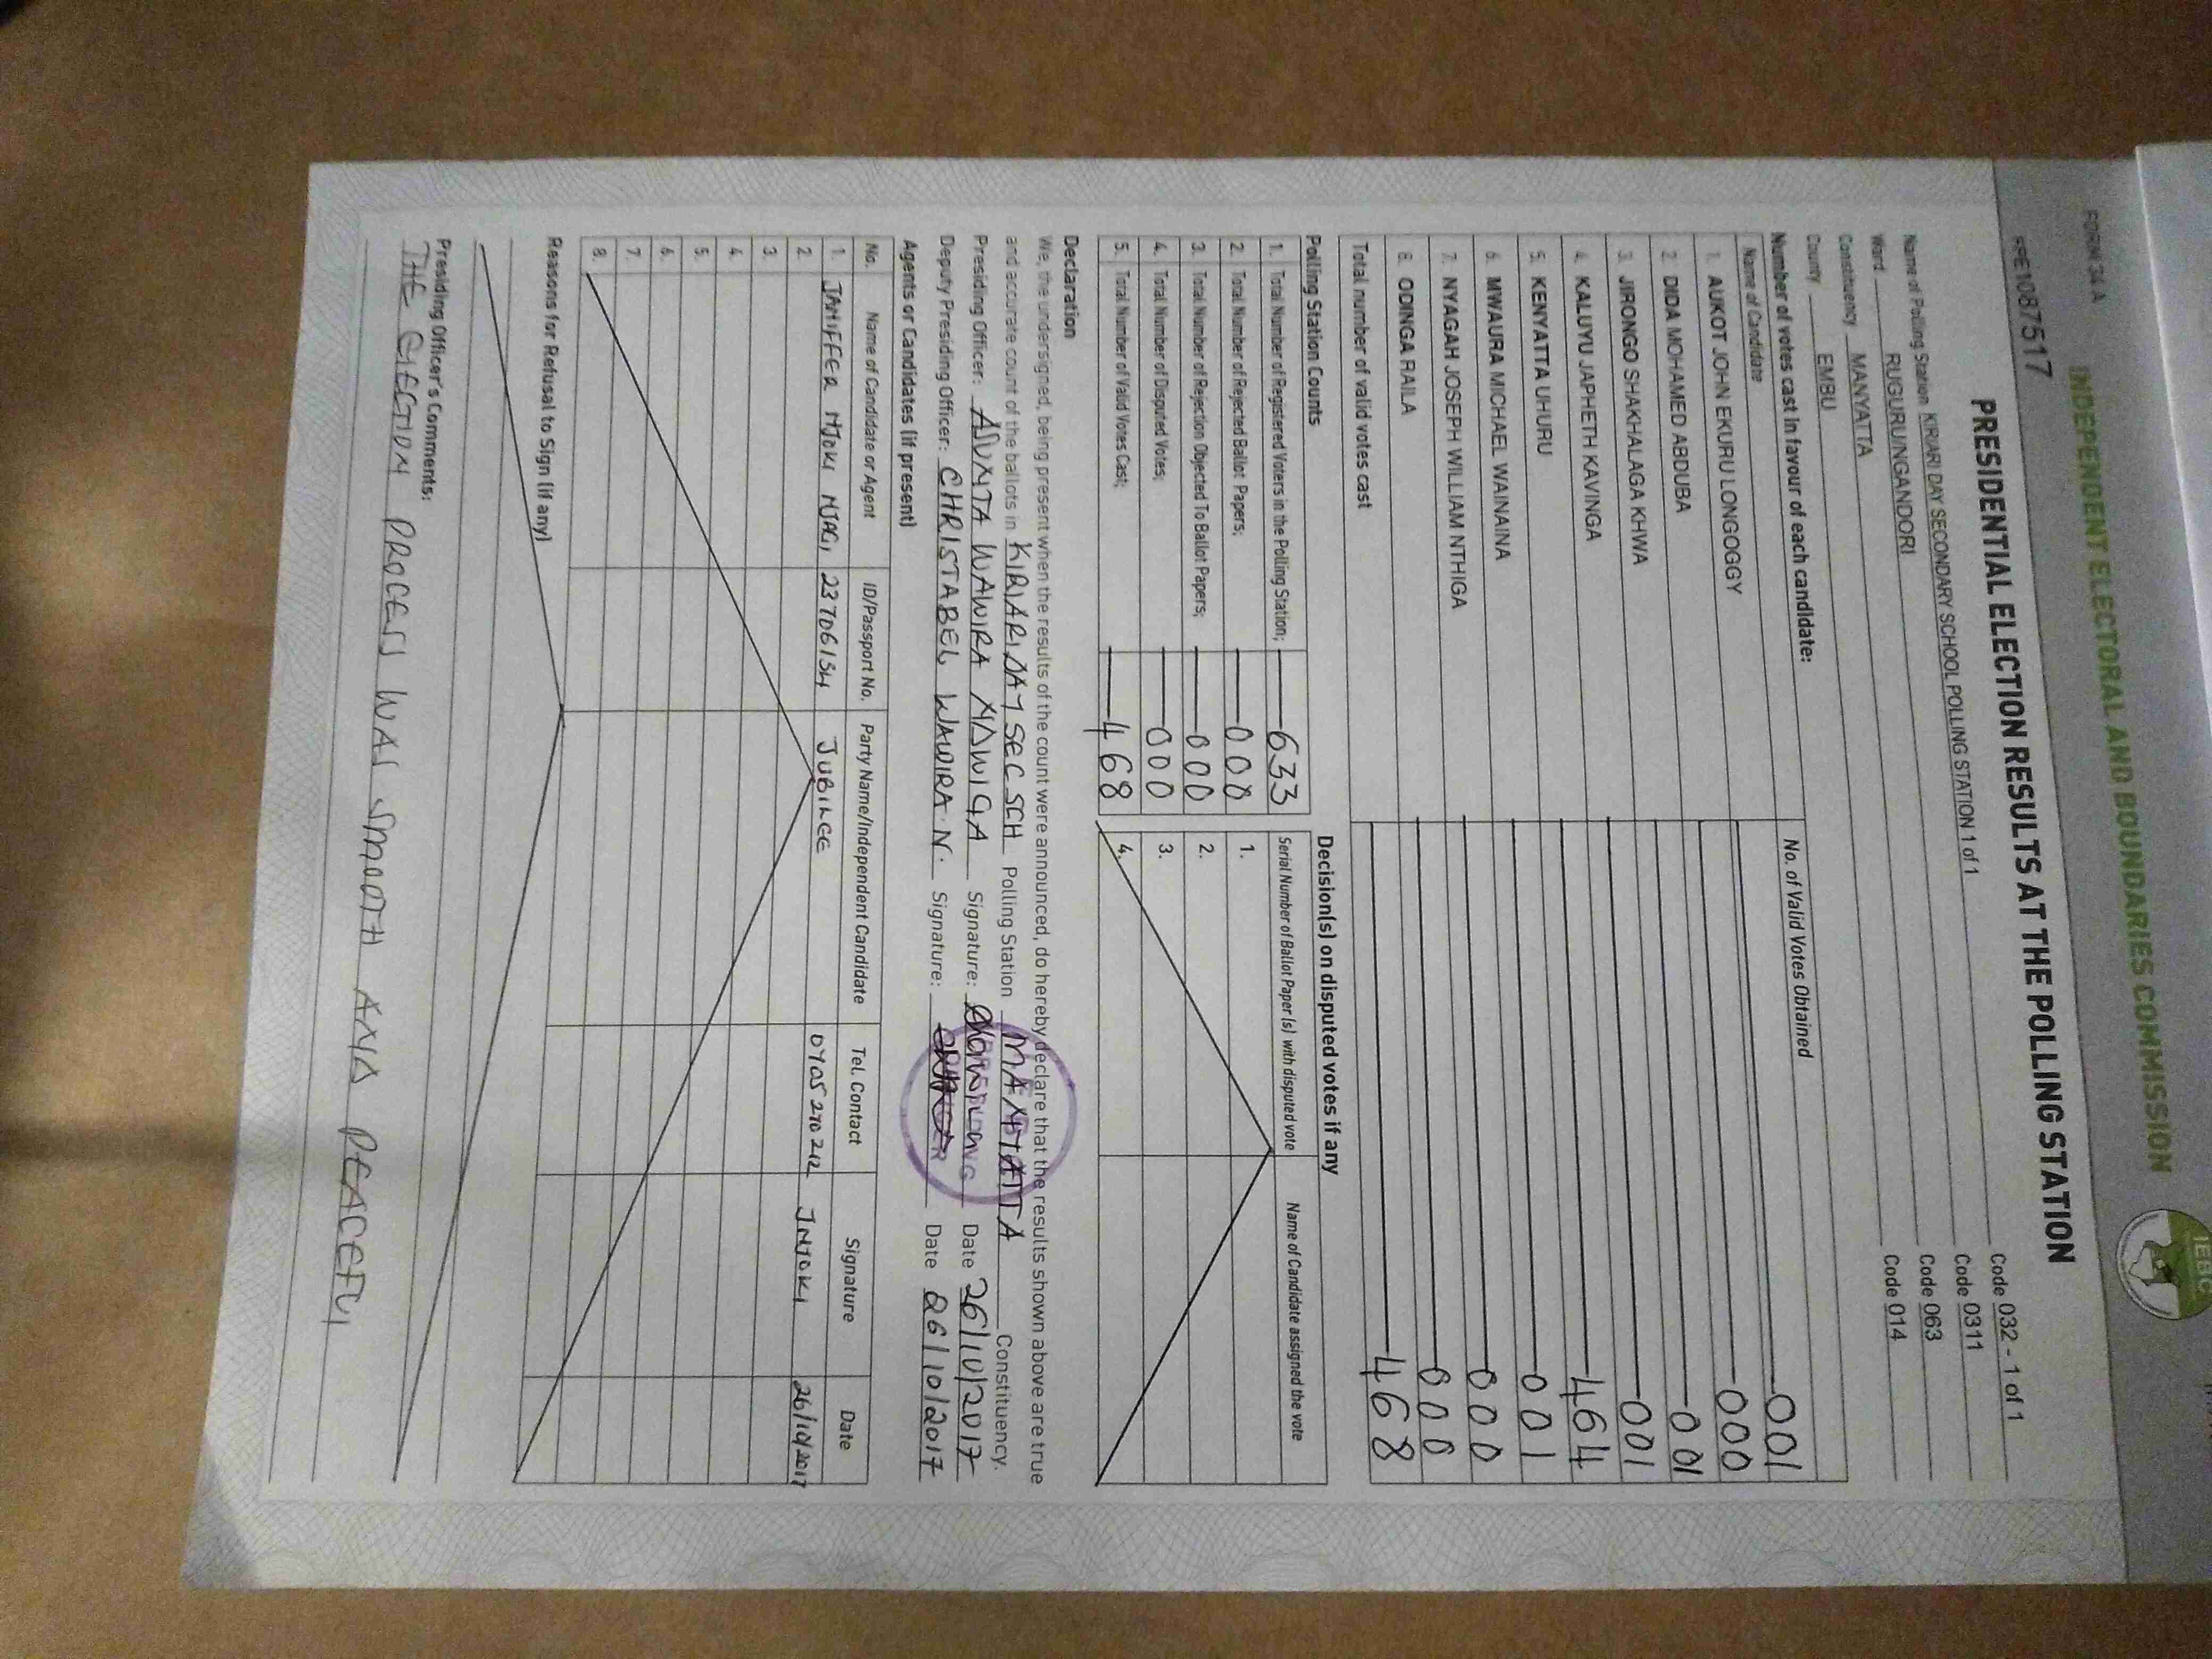 FORM 34 A
INDEPENDENT ELECTORAL AND BOUNDARIES COMMISSION
PRESIDENTIAL ELECTION RESULTS AT THE POLLING STATION
Name of Polling Station KIRIARI DAY SECONDARY SCHOOL POLLING STATION 1 of 1 Code 032 - 1 of 1
Ward RUGURU/NGANDORI Code 0311
Constituency MANYATTA Code 063
County EMBU Code 014
Number of votes cast in favour of each candidate:
Name of Candidate No. of Valid Votes Obtained
1. AUKOT JOHN EKURU LONGOGGY 001
2. DIDA MOHAMED ABDUBA 000
3. JIRONGO SHAKHALAGA KHWA 001
4. KALUYU JAPHETH KAVINGA 001
5. KENYATTA UHURU 464
6. MWAURA MICHAEL WAINAINA 001
7. NYAGAH JOSEPH WILLIAM NTHIGA 000
8. ODINGA RAILA 000
Total number of valid votes cast 468
Polling Station Counts
1. Total Number of Registered Voters in the Polling Station; 633
2. Total Number of Rejected Ballot Papers; 008
3. Total Number of Rejection Objected To Ballot Papers; 000
4. Total Number of Disputed Votes; 000
5. Total Number of Valid Votes Cast; 468
Decision(s) on disputed votes if any
Serial Number of Ballot Paper (s) with disputed vote Name of Candidate assigned the vote
1.
2.
3.
4.
Declaration
We, the undersigned, being present when the results of the count were announced, do hereby declare that the results shown above are true
and accurate count of the ballots in KIRIARI DAY SEC SCH Polling Station MANYATTA Constituency.
Presiding Officer: WAWIRA Signature: Date 26/10/2017
Deputy Presiding Officer: CHRISTABEL WAWIRA N. Signature: Date 26/10/2017
Agents or Candidates (if present)
No. Name of Candidate or Agent ID/Passport No. Party Name/Independent Candidate Tel. Contact Signature Date
1. JANIFFER NJOKI NJAGI 23706134 JUBILEE 0705270212 JNJOKI 26/10/2017
2.
3.
4.
5.
6.
7.
8.
Reasons for Refusal to Sign (if any)
Presiding Officer's Comments:
THE ELECTION PROCESS WAS SMOOTH AND PEACEFUL